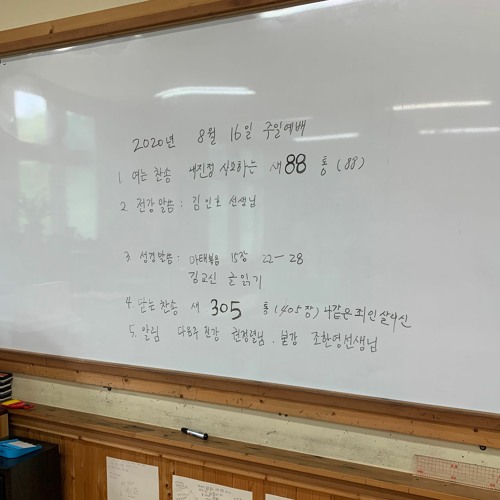 2020년 8월 16일 주일예배
1. 여는 찬송 내진정 사모하는 새88 통(88)
2. 전강말씀 : 김인호 선생님
3. 성경말씀 : 마태복음 15장 22-28
김교신 글 읽기
4. 닫는 찬송 새 305 통(405장) 나같은 죄인 살리신
5. 알림 다음주 전강 권정렬님. 본강 조한영선생님